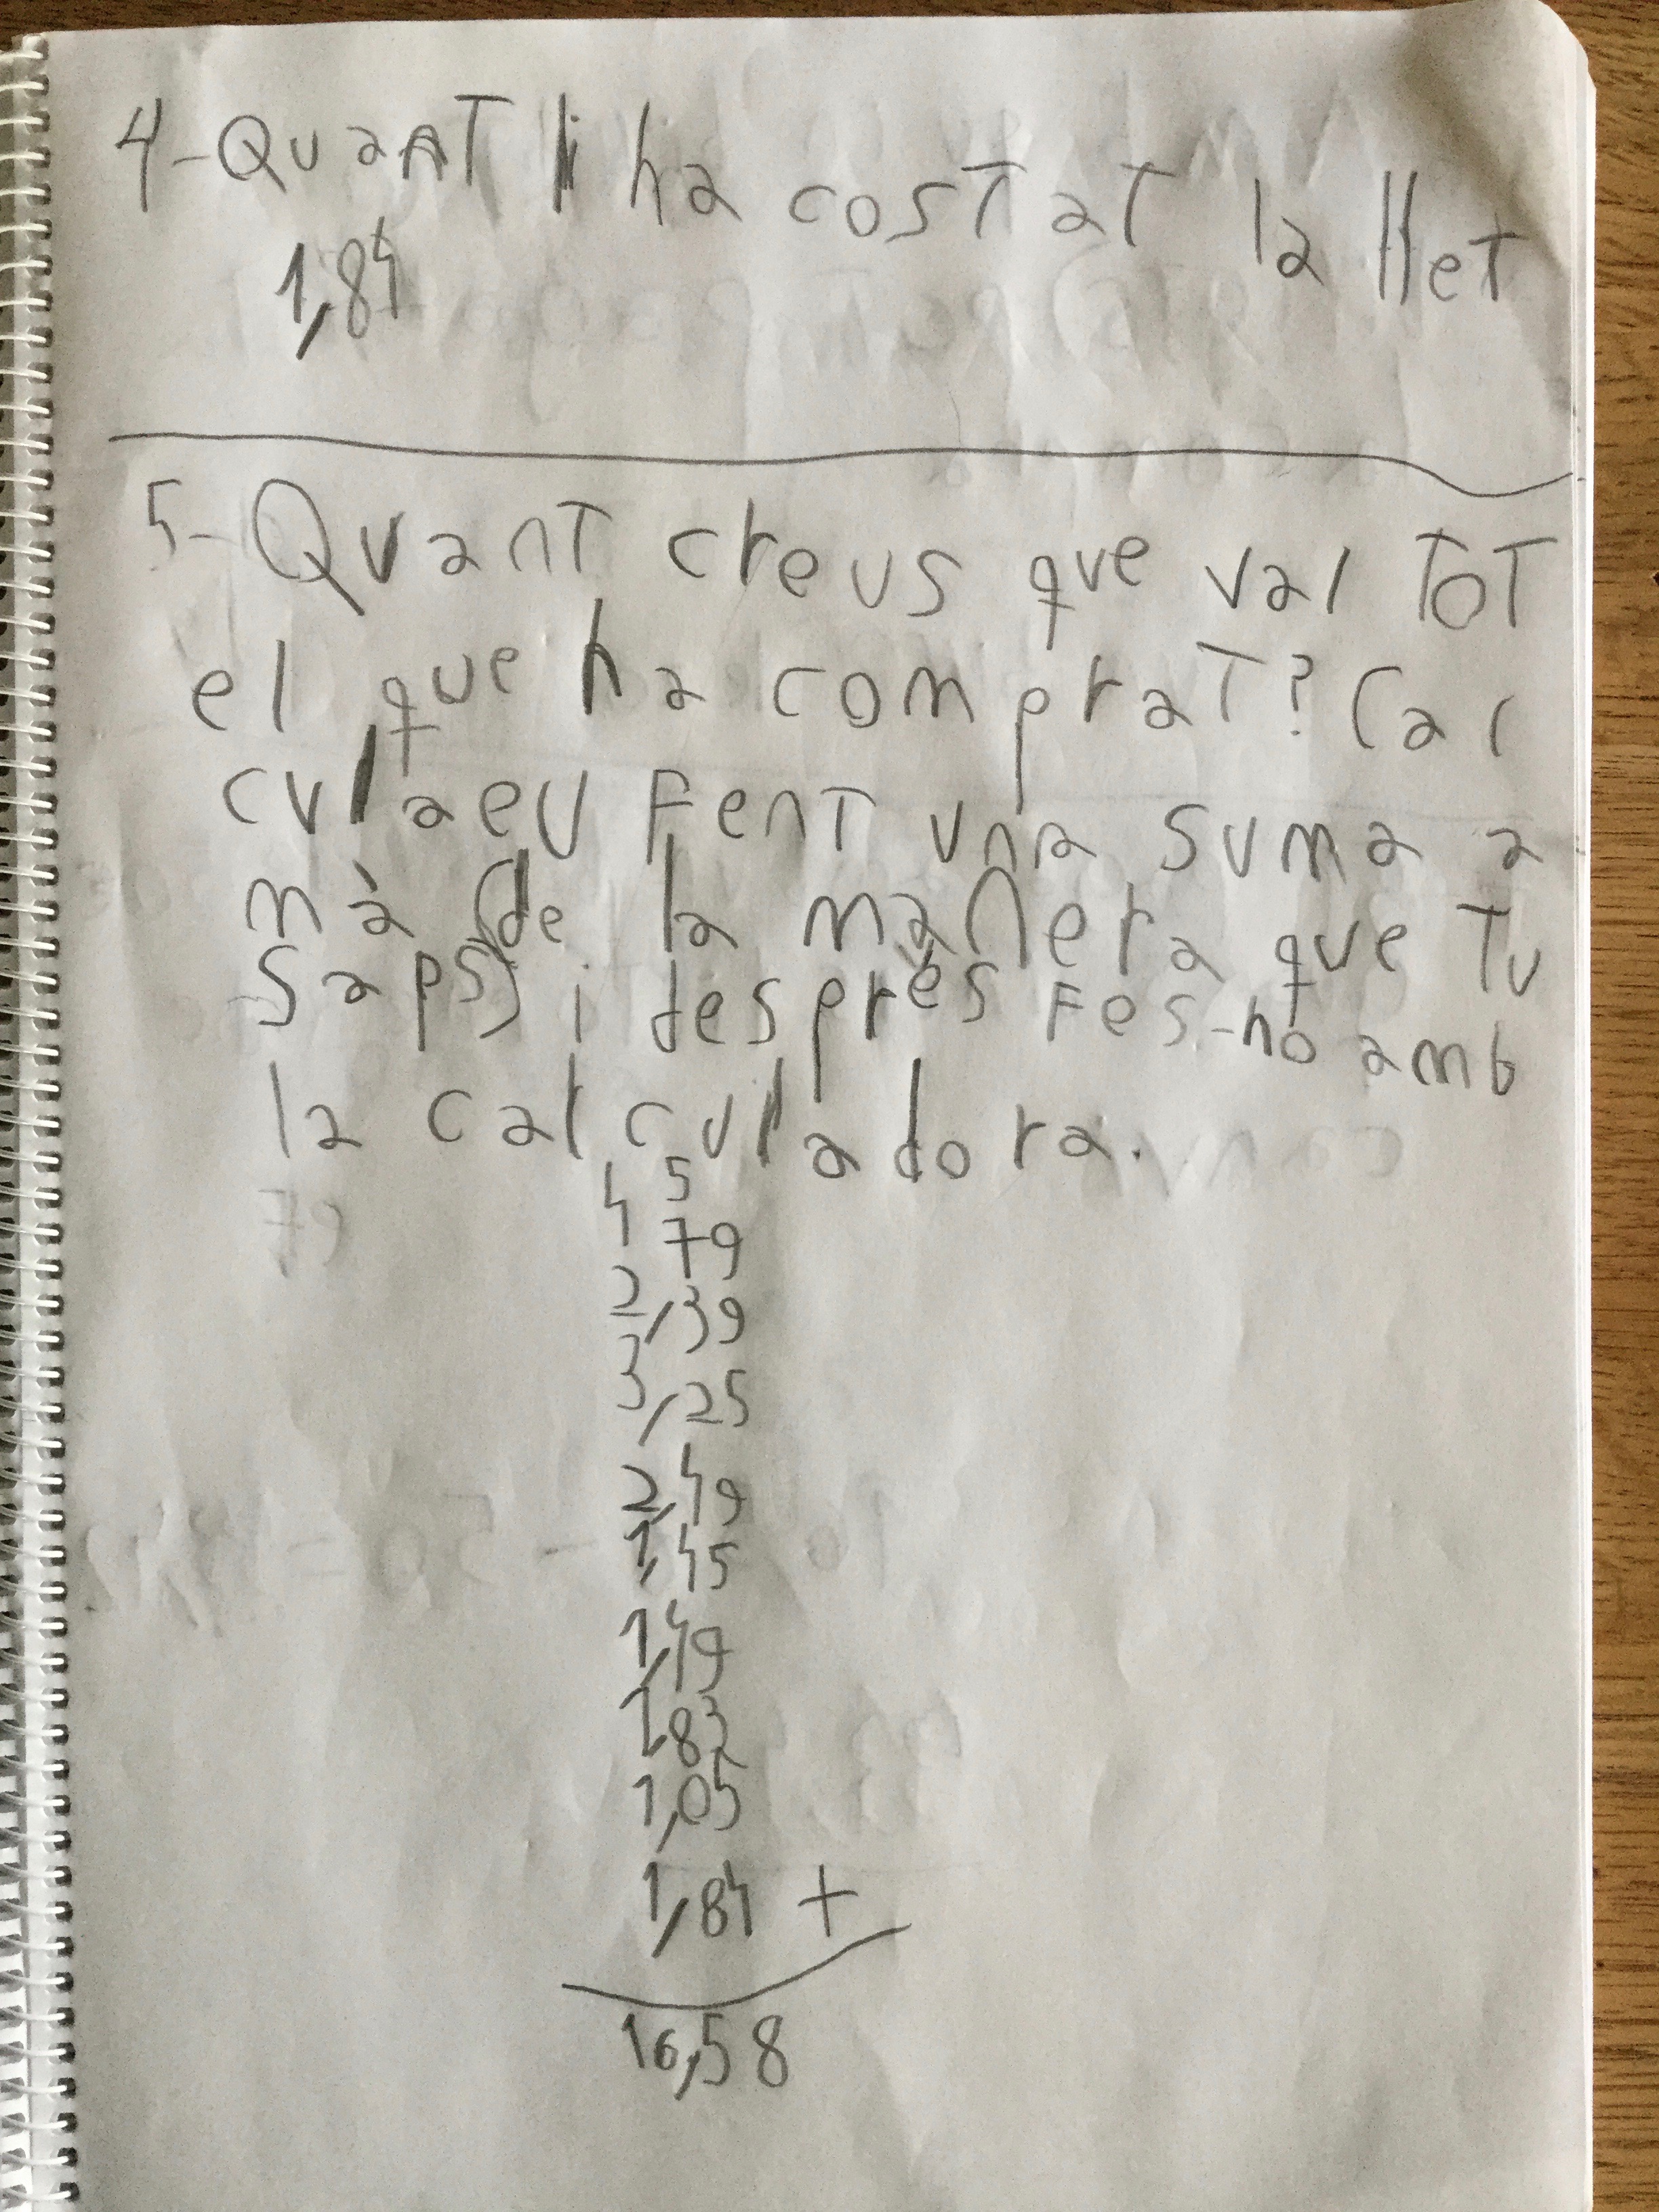 4-QUANT li ha COSTAT la lleT
1,84
5-QUANT creus que val TOT
el que ha compraT? Cal
culaeu FenT una suma a
mà (de la manera que Tu
saps) i després Fes-ho amb
la calculadora.
4 5
79
2,39
3,25
2,49
1,45
1,49
1,83
1,05
1,84 +
16,58